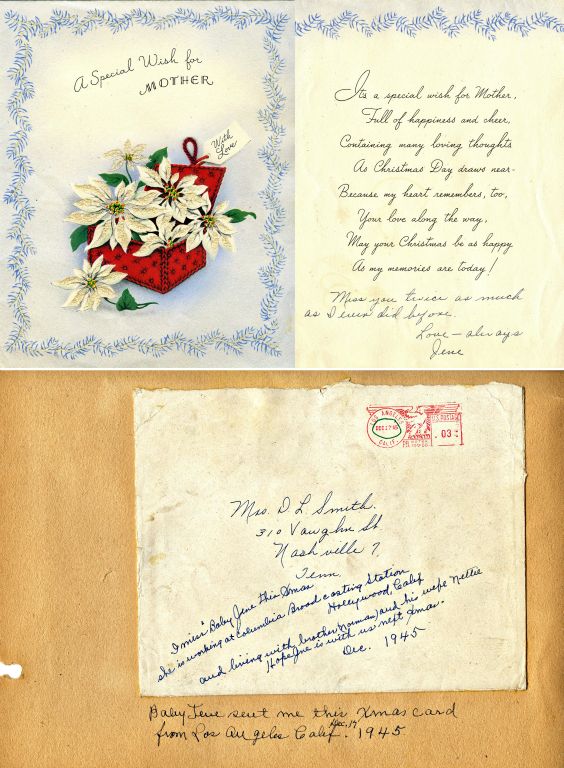 A Special Wish for
MOTHER
With
Love
It's a special wish for Mother,
Full of happiness and cheer,
Containing many loving thoughts
As Christmas Day draws near-
Because my heart remembers, too,
Your love along the way,
May your Christmas be as happy
As my memories are today!
Miss you twice as much
as I ever did before.
Love - always
Jene
LOS ANGELES
DEC 17 45
CALIF.
U.S. POSTAGE
.03
Mrs. D. L. Smith.
310 Vaughn St.
Nashville 7,
Tenn.
I miss "Baby Jene this Xmas
She is working at Columbia Broadcasting Station
Hollywood, Calif
and living with brother (norman) and his wife Nettie
Hope Jne is with us next Xmas.
Dec. 1945
Baby Jene sent me this Xmas card
from Los Angeles Calif. Dec, 17 1945